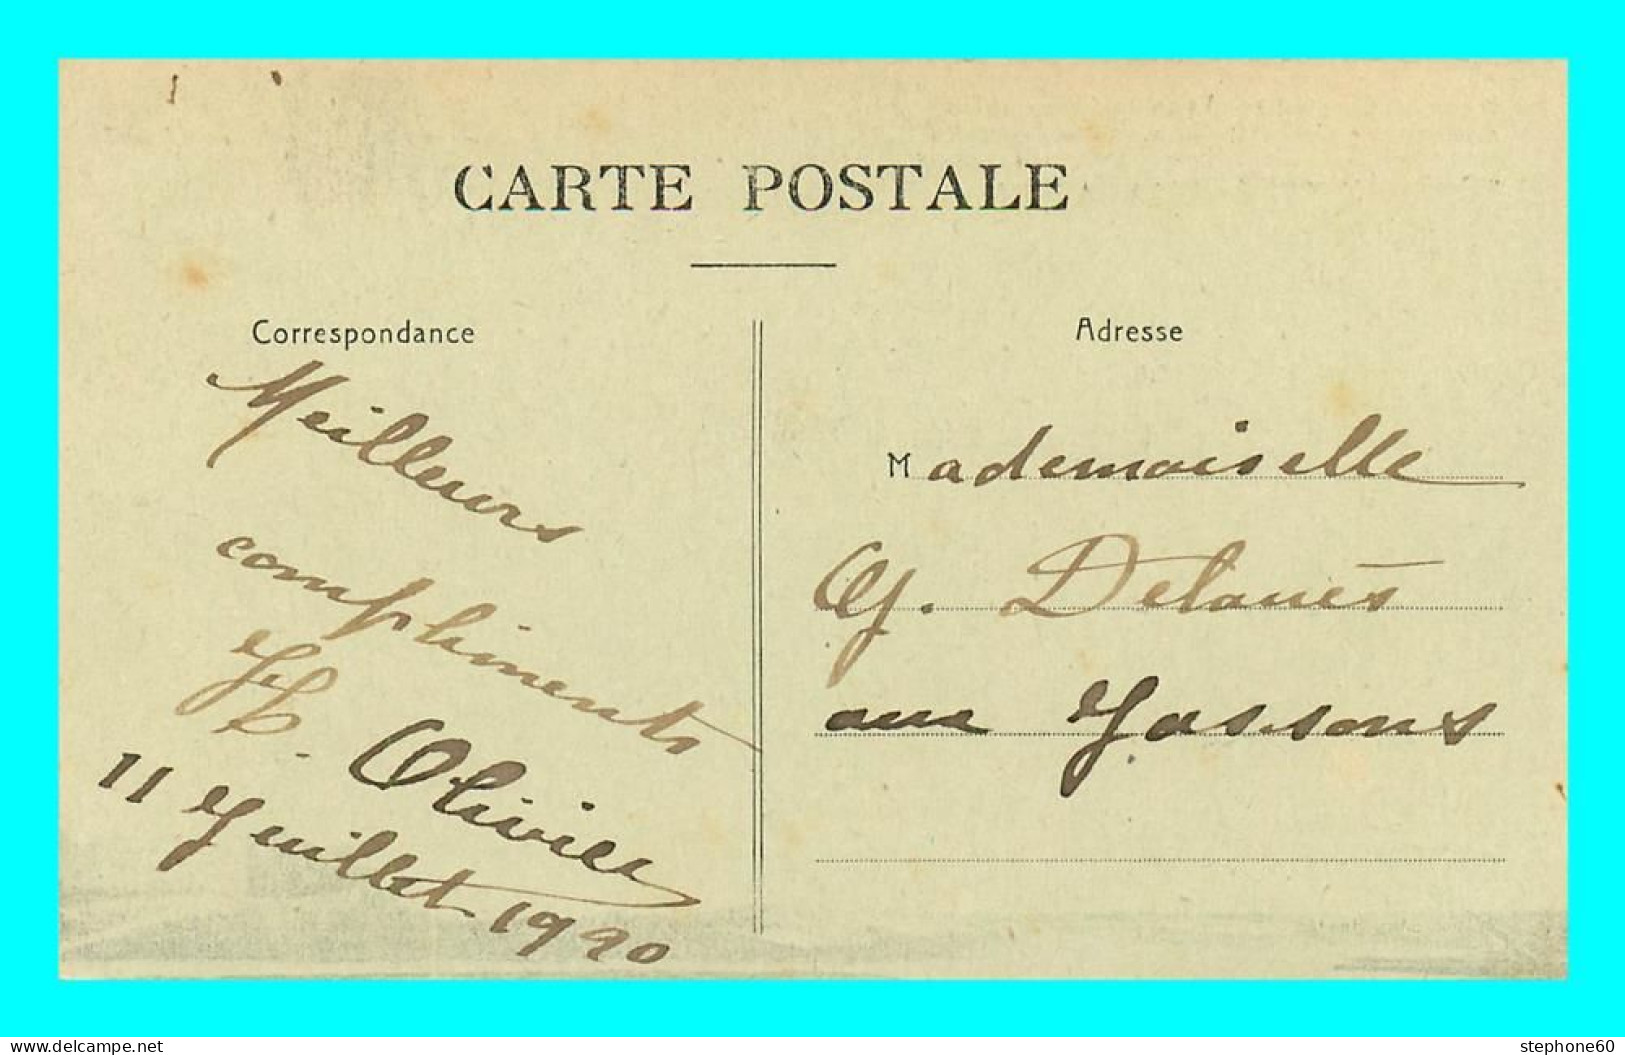 CARTE POSTALE
Correspondance
Meilleurs
compliments
Olivier
11 Juillet 1920
Adresse
Mademoiselle
G. Delanés
aux Jassons
delcampe.net
stephone60